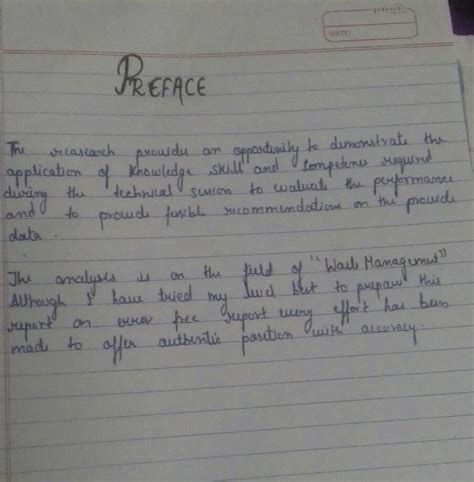 DATE:
PREFACE
The reasearch provides an opportunity to demonstrate the
application of knowledge skill and competence required
during the technical session to evaluate the performance
and to provide fesible recommendations on the provide
data.
The analysis is on the field of "Waste Management"
Although I have tried my level best to prepare this
report an error free report every effort has been
made to offer authentic position with accuracy.